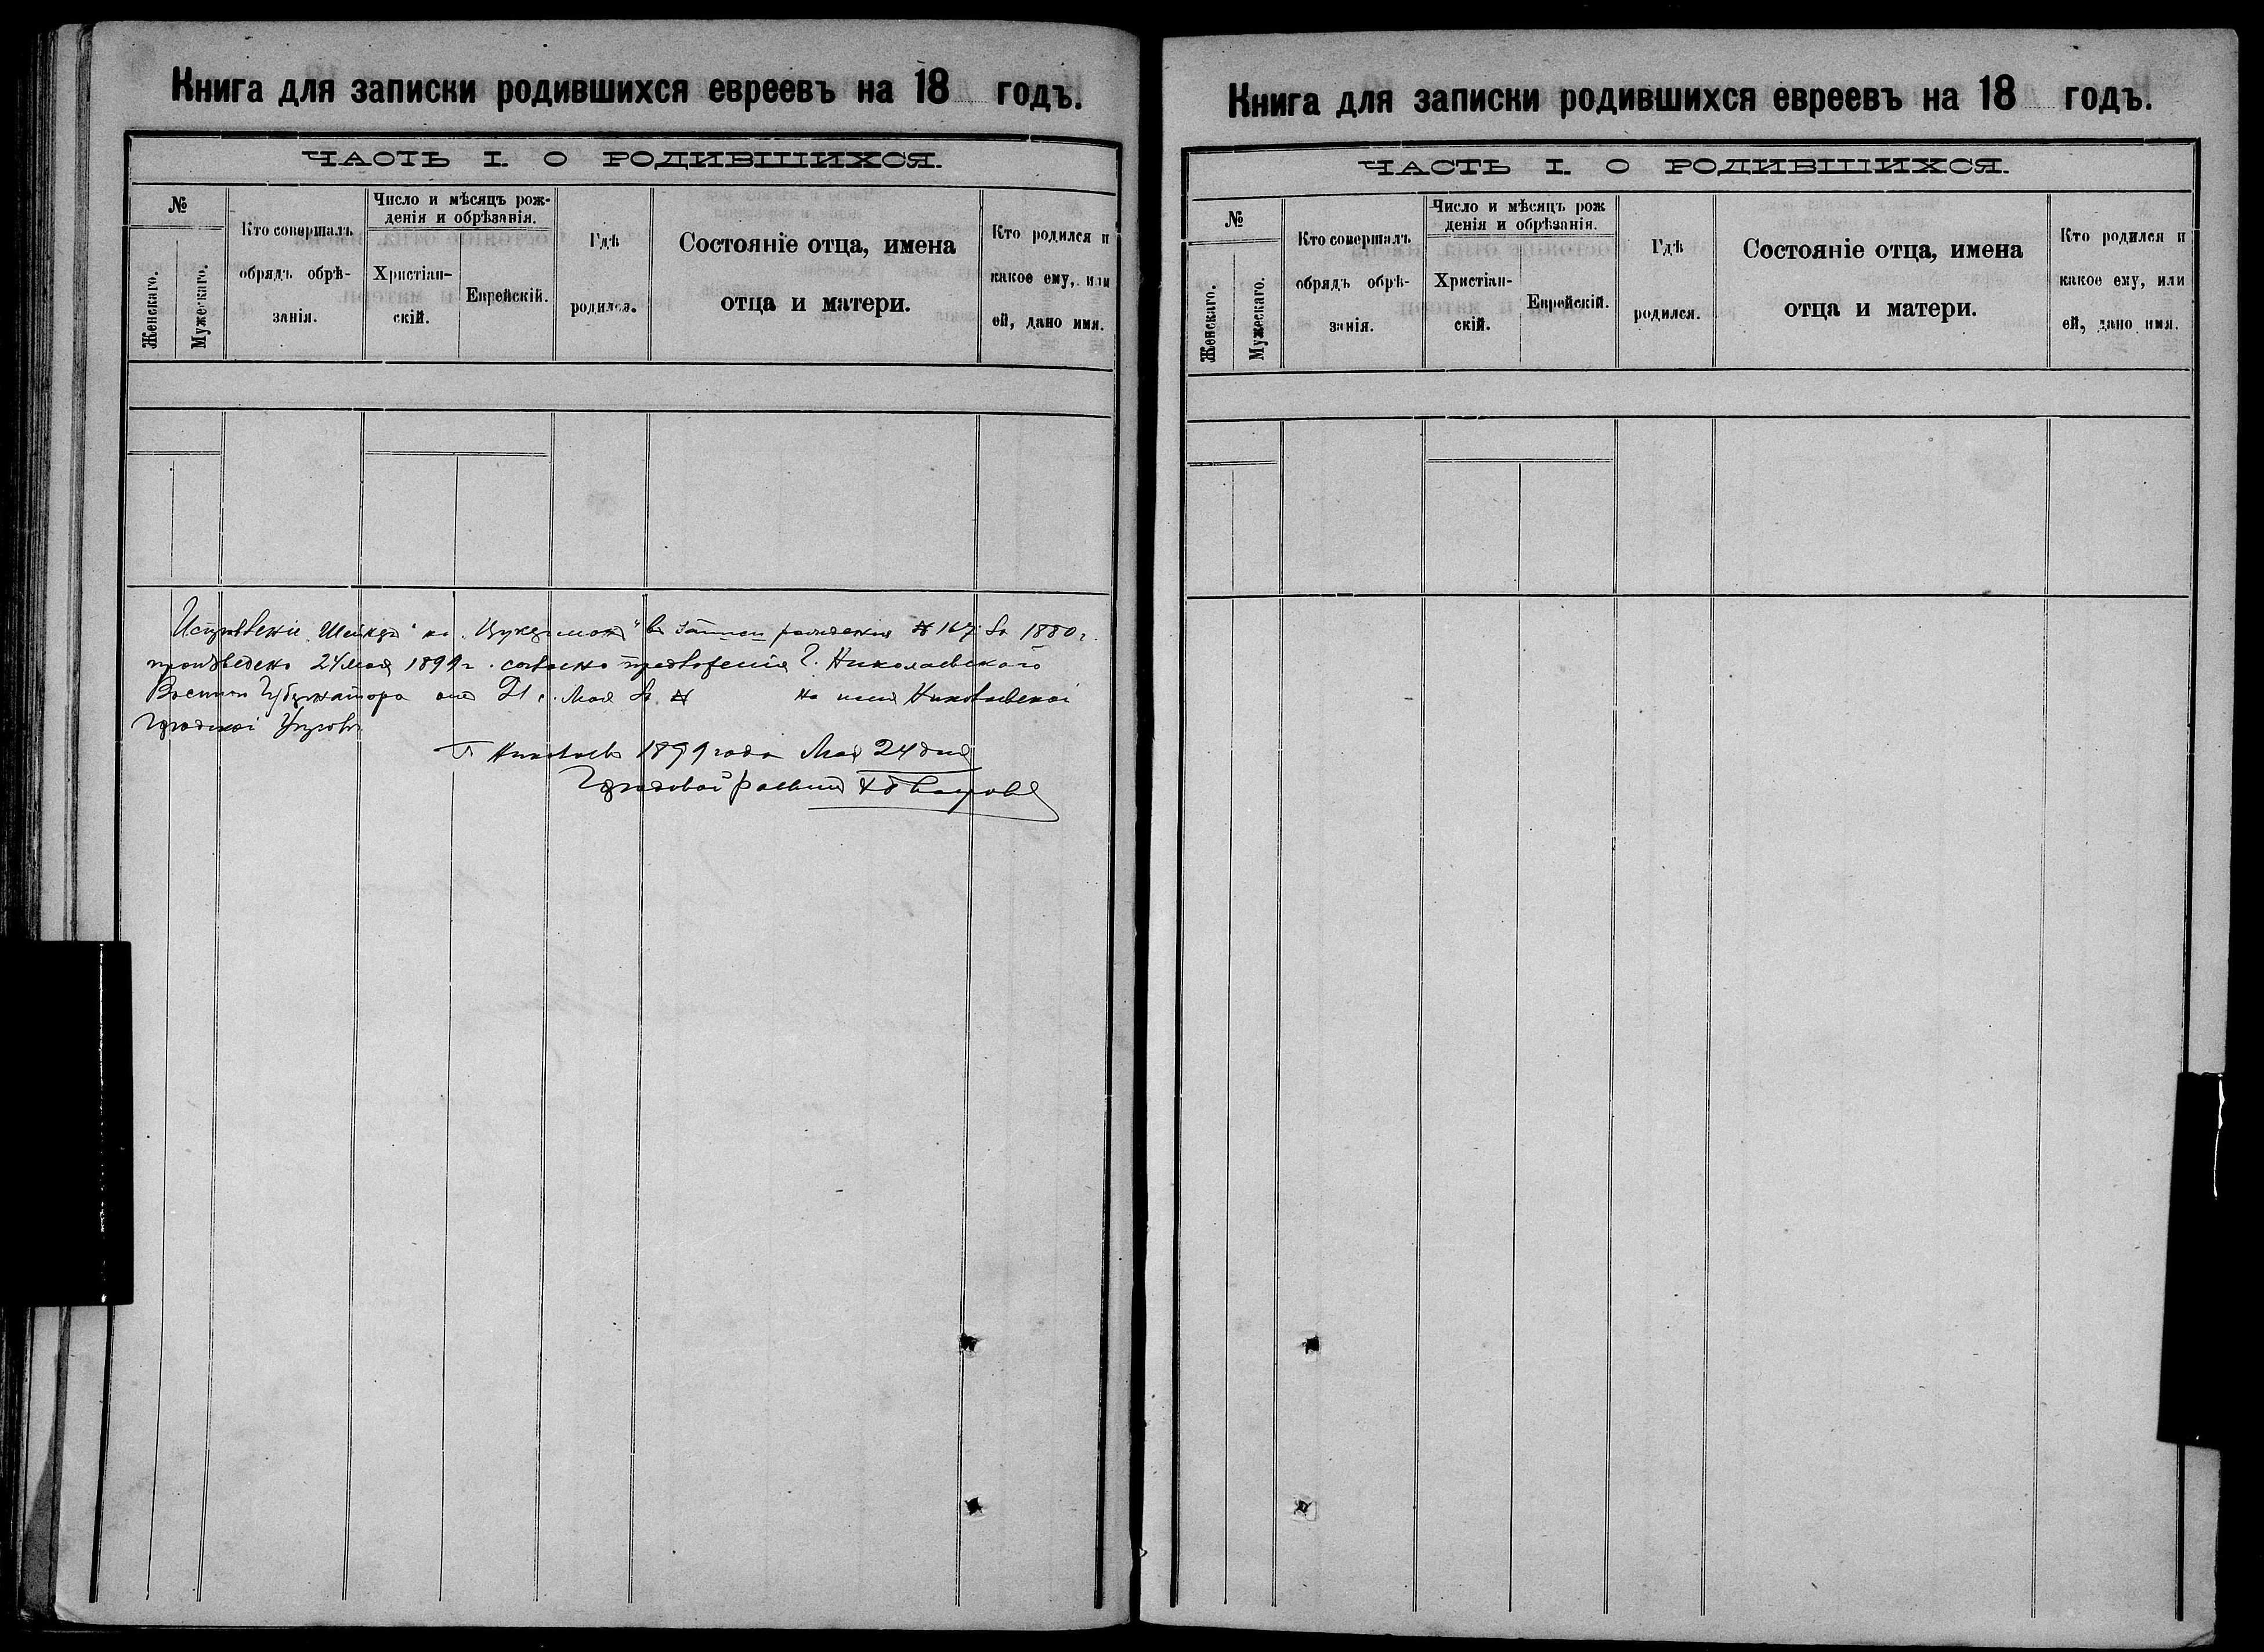 Книга для записки родившихся евреевъ на 18 годъ.
ЧАСТЬ I. О РОДИВШИХСЯ.
№
Женскаго.
Мужескаго.
Кто совершалъ
обрядъ обрѣ-
занія.
Число и мѣсяцъ рож-
денія и обрѣзанія.
Христіан-
скій.
Еврейскій.
Гдѣ
родился.
Состояніе отца, имена
отца и матери.
Кто родился и
какое ему, или
ей, дано имя.
Исправленіе "Шейндл" на "Цукерман" въ записи рожденія № 167 за 1880 г.
произведено 24 мая 1899 г. согласно предложенія Г. Николаевского
Военнаго Губернатора отъ 21 с. Мая за № на имя Николаевской
Городской Управы
Г. Николаевъ 1899 года Мая 24 дня
Городовой раввинъ
Книга для записки родившихся евреевъ на 18 годъ.
ЧАСТЬ I. О РОДИВШИХСЯ.
№
Женскаго.
Мужескаго.
Кто совершалъ
обрядъ обрѣ-
занія.
Число и мѣсяцъ рож
денія и обрѣзанія.
Христіан-
скій.
Еврейскій.
Гдѣ
родился.
Состояніе отца, имена
отца и матери.
Кто родился и
какое ему, или
ей, дано имя.